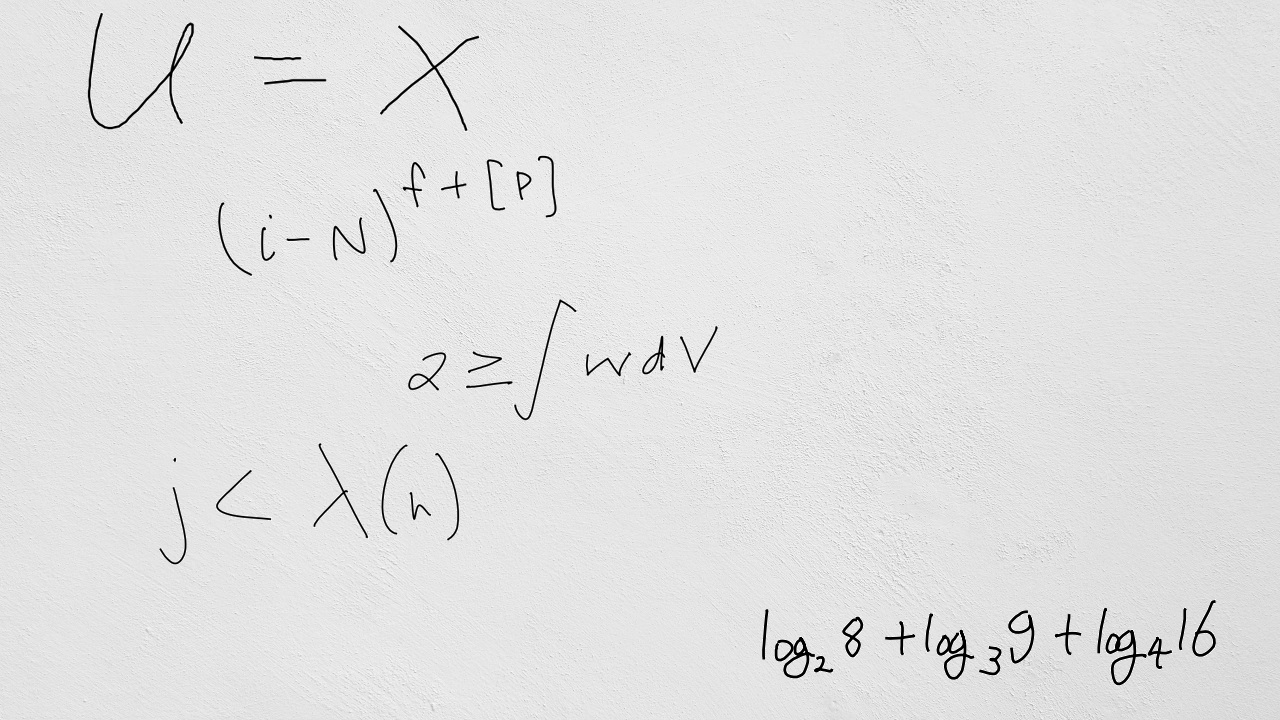 U = X
(i - N)^{f + [P]}
2 ≥ ∫ w d V
j < λ(n)
log₂ 8 + log₃ 9 + log₄ 16